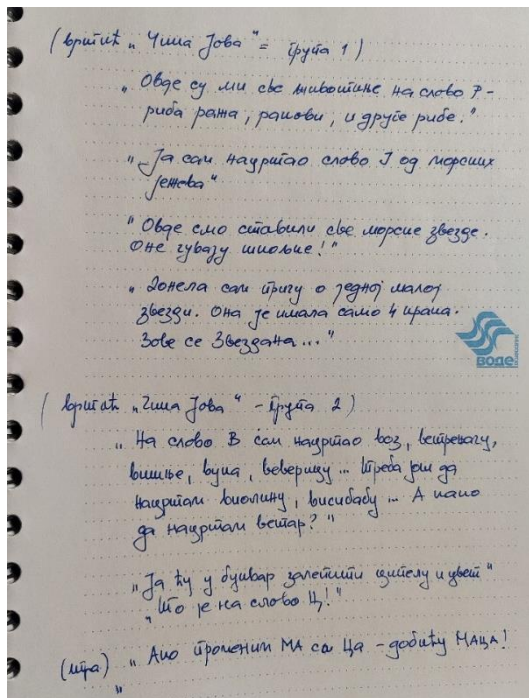 (вртић „Чика Јова" = група 1)
„Овде су ми све животиње на слово Р-
риба ража, ракови, и друге рибе."
„Ја сам нацртао слово Ј од морских
јежева"
"Овде смо ставили све морске звезде.
Оне чувају шкољке!"
„Донела сам причу о једној малој
звезди. Она је имала само 4 крака.
Зове се Звездана..."
ВОДЕ
(вртић „Чика Јова" - група 2)
„На слово В сам нацртао воз, ветрењачу,
вишње, вука, веверицу... Треба још да
нацртам виолину, висибабу... А како
да нацртам ветар?"
„Ја ћу у буквар залепити ципелу и цвет"
"То је на слово Ц!"
(игра) „Ако променим МА са Ца - добићу МАЦА!
"